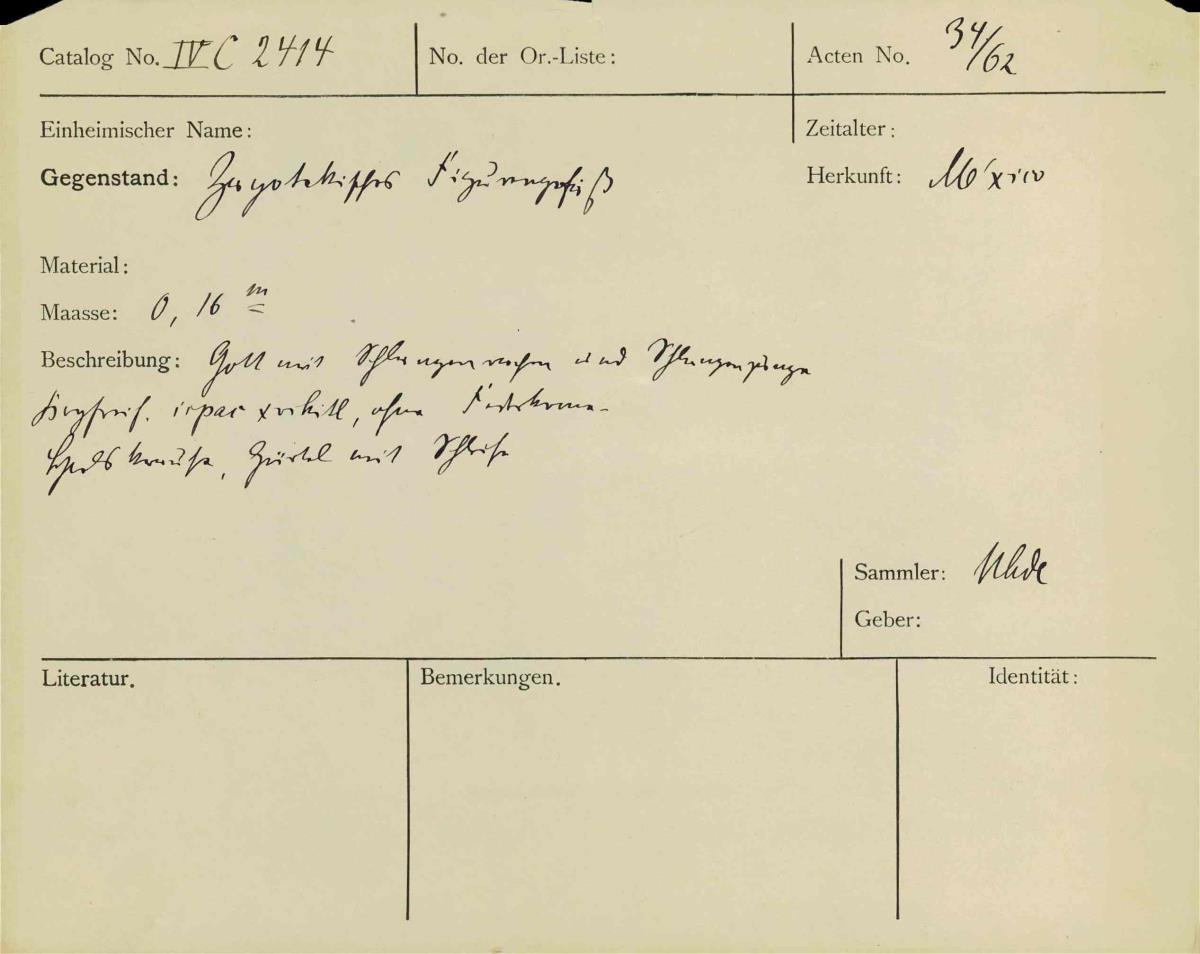 Catalog No. IV C 2414
No. der Or.-Liste:
Acten No. 34/62
Einheimischer Name:
Zeitalter:
Gegenstand: Zapotekisches Figurengefäß
Herkunft: México
Material:
Maasse: 0,16 m
Beschreibung: Gott mit Schlangenrachen und Schlangenzunge
icpac xochitl, ohne Federkrone
Halskrause, Gürtel mit Schleife
Sammler: Uhde
Geber:
Literatur.
Bemerkungen.
Identität: